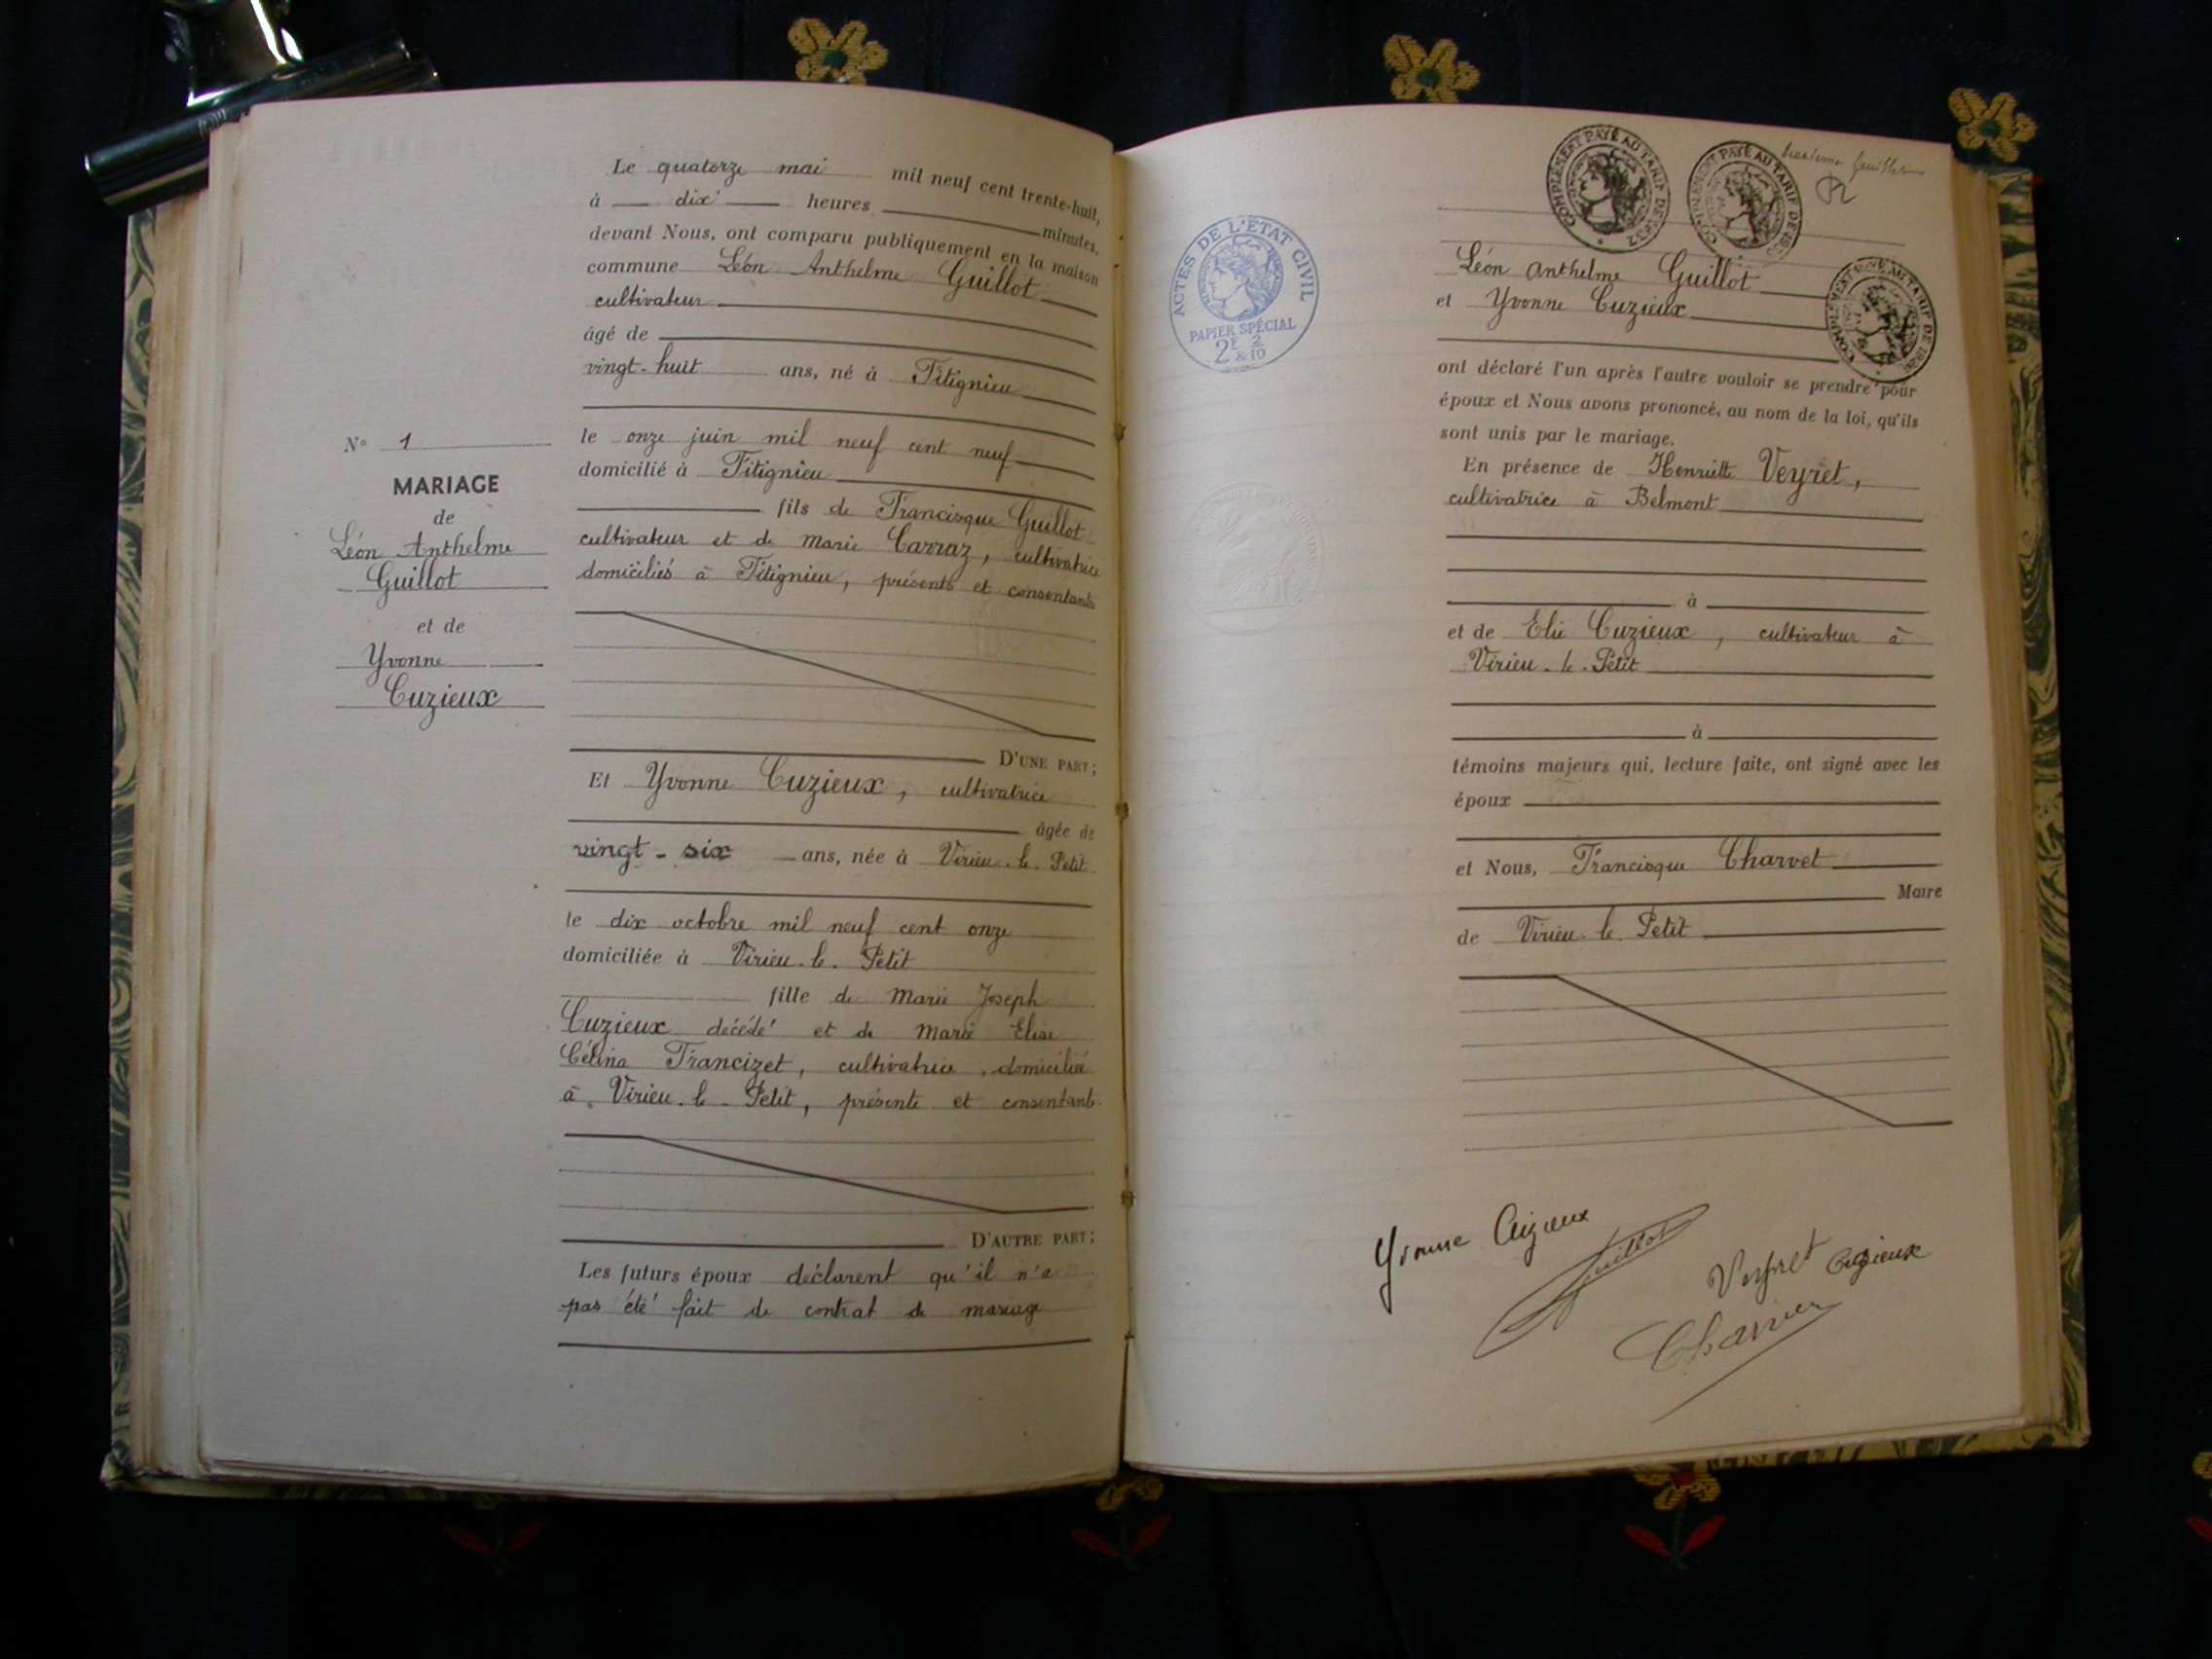 Le quatorze mai mil neuf cent trente-huit,
à dix heures minutes,
devant Nous, ont comparu publiquement en la maison
commune Léon Anthelme Guillot
cultivateur
âgé de
vingt-huit ans, né à Fitignieu
le onze juin mil neuf cent neuf
domicilié à Fitignieu
fils de Francisque Guillot
cultivateur et de Marie Carraz, cultivatrice
domiciliés à Fitignieu, présents et consentants
D'UNE PART;
Et Yvonne Cuzieux, cultivatrice
âgée de
vingt-six ans, née à Virieu-le-Petit
le dix octobre mil neuf cent onze
domiciliée à Virieu-le-Petit
fille de Marie Joseph
Cuzieux décédé et de Marie Elise
Célina Francizet, cultivatrice, domiciliée
à Virieu-le-Petit, présente et consentante
D'AUTRE PART;
Les futurs époux déclarent qu'il n'a
pas été fait de contrat de mariage
N° 1
MARIAGE
de
Léon Anthelme
Guillot
et de
Yvonne
Cuzieux
ACTES DE L'ÉTAT CIVIL
PAPIER SPÉCIAL
2F 2
& 10
COMPLÉMENT PAYÉ AU TARIF DE
COMPLÉMENT PAYÉ AU TARIF DE
deuxième feuillet
COMPLÉMENT PAYÉ AU TARIF DE
Léon Anthelme Guillot
et Yvonne Cuzieux
ont déclaré l'un après l'autre vouloir se prendre pour
époux et Nous avons prononcé, au nom de la loi, qu'ils
sont unis par le mariage.
En présence de Henriette Veyret,
cultivatrice à Belmont
à
et de Elie Cuzieux, cultivateur à
Virieu-le-Petit
à
témoins majeurs qui, lecture faite, ont signé avec les
époux
et Nous, Francisque Charvet
Maire
de Virieu-le-Petit
Yvonne Cuzieux
Guillot
Veyret Cuzieux
Charvet